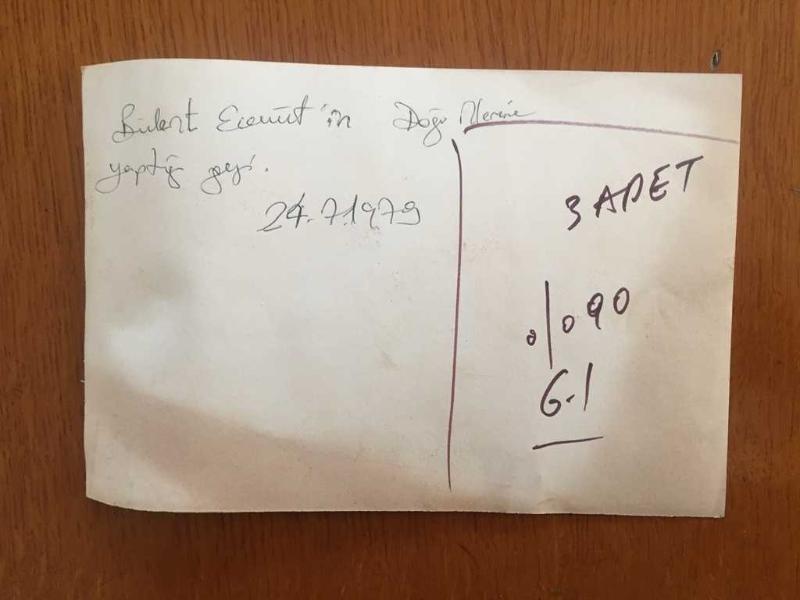 Bülent Ecevit'in Doğu illerine
yaptığı gezi.
24.7.1979
3 ADET
%090
6.1